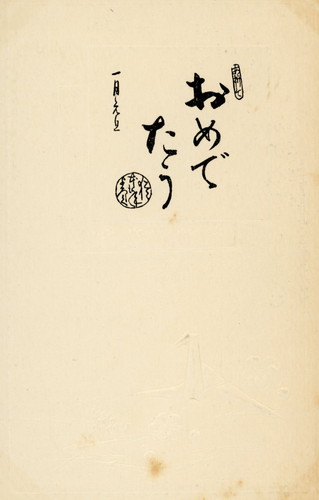 おめで
たう
一月元旦